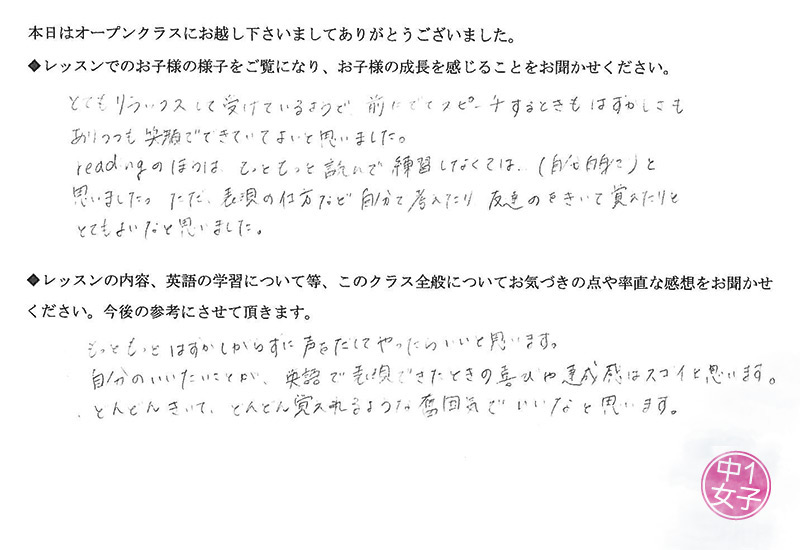 本日はオープンクラスにお越し下さいましてありがとうございました。
◆レッスンでのお子様の様子をご覧になり、お子様の成長を感じることをお聞かせください。
とてもリラックスして受けているようで、前にでてスピーチするときもはずかしさも
ありつつも笑顔でできていてよいと思いました。
readingのほうは、もっともっと読んで練習しなくては、(自分自身で)と
思いました。ただ、表現の仕方など自分で考えたり 友達のをきいて覚えたりと
とてもよいなと思いました。
◆レッスンの内容、英語の学習について等、このクラス全般についてお気づきの点や率直な感想をお聞かせ
ください。今後の参考にさせて頂きます。
もっともっとはずかしがらずに声をだしてやったらいいと思います。
自分のいいたいことが、英語で表現できたときの喜びや達成感はスゴイと思います。
どんどんきいて、どんどん覚えれるような雰囲気でいいなと思います。
中1
女子